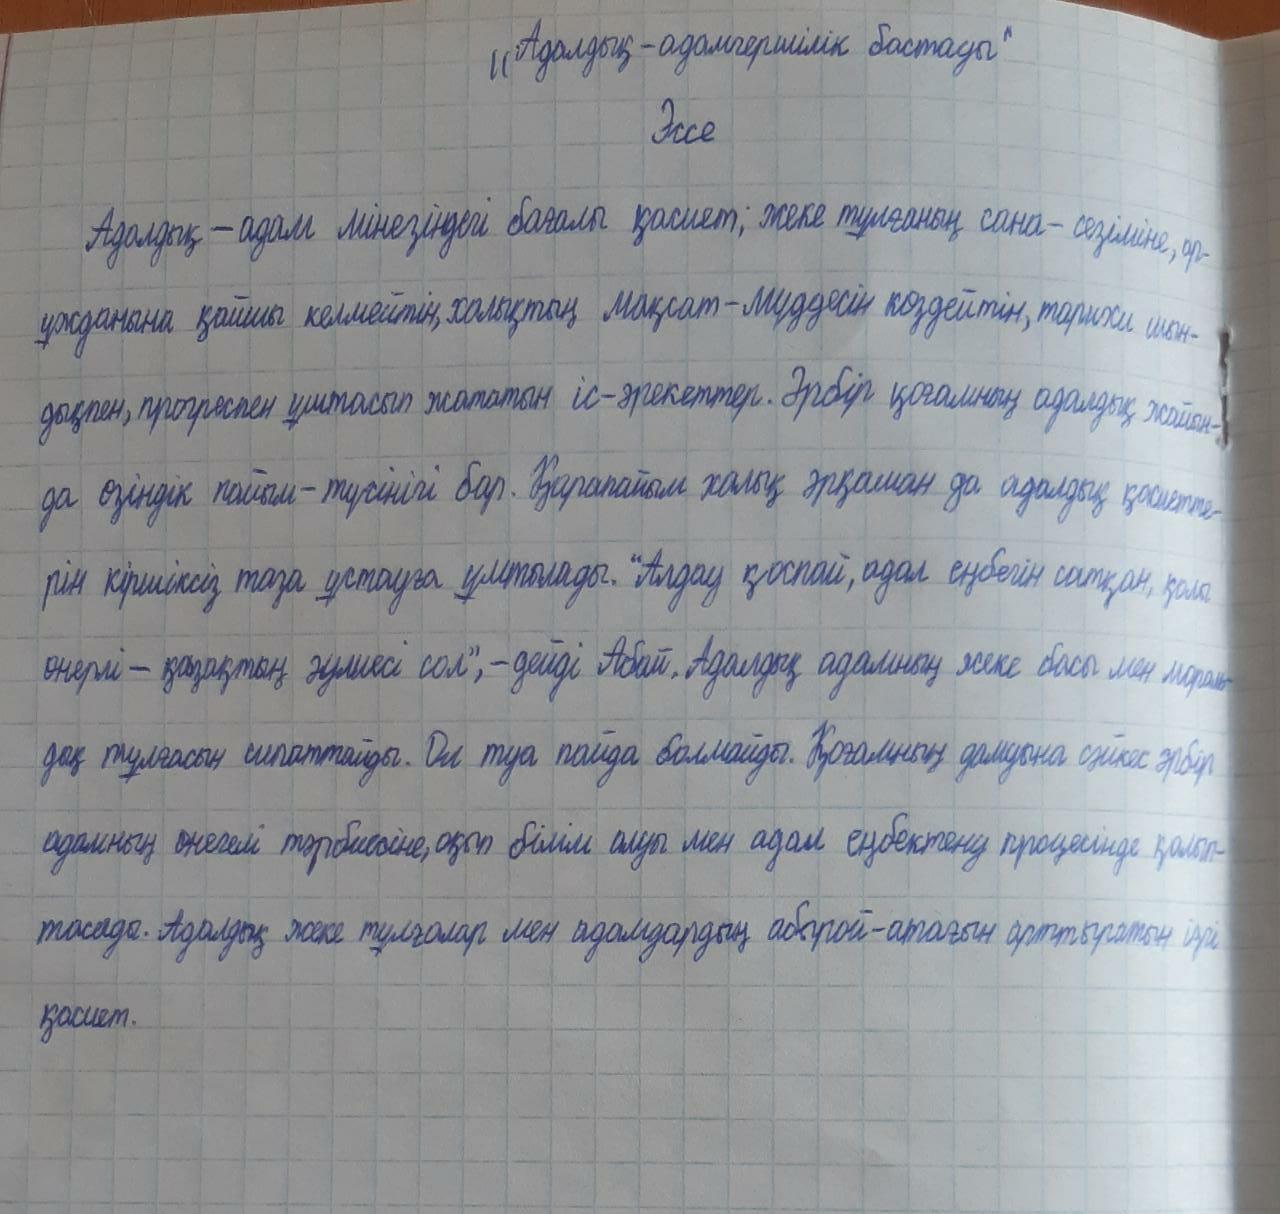 "Адалдық – адамгершілік бастауы"
Эссе
Адалдық – адам мінезіндегі бағалы қасиет; жеке тұлғаның сана – сезіміне, ар-
ұжданына қайшы келмейтін, халықтың мақсат – мүддесін көздейтін, тарихи шын-
дықпен, прогреспен ұштасып жататын іс-әрекеттер. Әрбір қоғамның адалдық жайын-
да өзіндік пайым – түсінігі бар. Қарапайым халық әрқашан да адалдық қасиетте-
рін кіршіксіз таза ұстауға ұмтылады. "Алдау қоспай, адал еңбегін сатқан, қолы
өнерлі – қазақтың әулиесі сол", – дейді Абай. Адалдық адамның жеке басы мен мораль-
дық тұлғасын сипаттайды. Ол туа пайда болмайды. Қоғамның дамуына сәйкес әрбір
адамның өнегелі тәрбиесіне, оқып білім алуы мен адал еңбектену процесінде қалып-
тасады. Адалдық жеке тұлғалар мен адамдардың абырой-атағын арттыратын ізгі
қасиет.